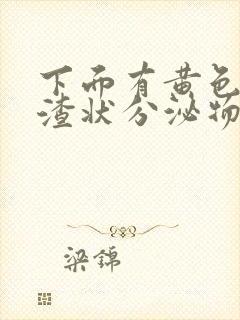 下而有黄色
渣状分泌物
梁锦